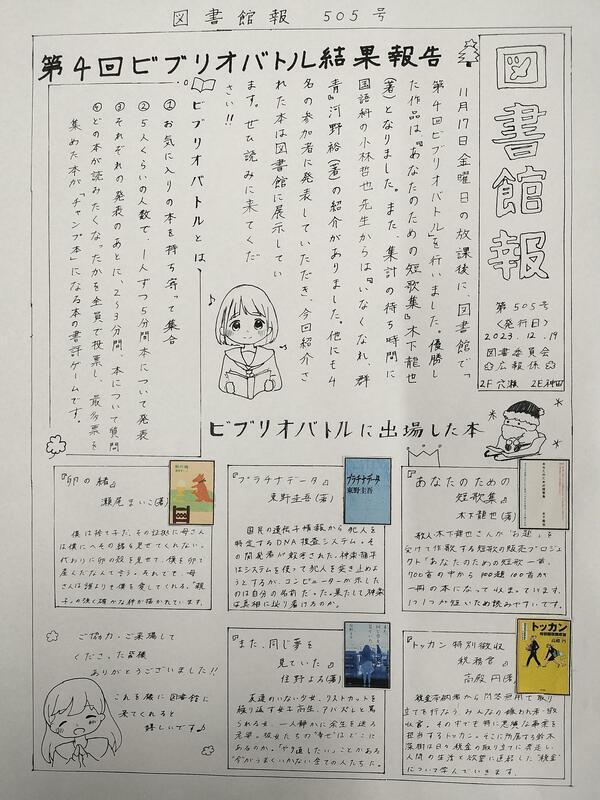 図書館報 505号
第4回ビブリオバトル結果報告
図書館報
第505号
〈発行日〉
2023.12.19
図書委員会
広報係
2F穴瀬 2E神田
11月17日金曜日の放課後に、図書館で「
第4回ビブリオバトル」を行いました。優勝し
た作品は『あなたのための短歌集』木下龍也
(著)となりました。また、集計の待ち時間に
国語科の小林哲也先生からは『いなくなれ、群
青』河野裕(著)の紹介がありました。他にも4
名の参加者に発表していただき、今回紹介さ
れた本は図書館に展示してい
ます。ぜひ読みに来てくだ
さい!!
ビブリオバトルとは
①お気に入りの本を持ち寄って集合
②5人くらいの人数で、1人ずつ5分間本について発表
③それぞれの発表のあとに、2~3分間、本について質問
④どの本が読みたくなったかを全員で投票し、最多票を
集めた本が「チャンプ本」になる本の書評ゲームです。
ビブリオバトルに出場した本
『卵の緒』
瀬尾まいこ(著)
僕は捨て子だ。その証拠に母さん
は僕にへその緒を見せてくれない。
代わりに卵の殻を見せて、僕を卵で
産んだなんて言う。それでも、母さ
んは誰よりも僕を愛してくれる。"親
子"の強く確かな絆が描かれています。
『プラチナデータ』
東野圭吾(著)
プラチナデータ
東野圭吾
国民の遺伝子情報から犯人を
特定するDNA捜査システム。そ
の開発者が殺害された。神楽龍平
はシステムを使って犯人を突き止めよ
うとするが、コンピューターが示したの
は自分の名前だった。果たして神楽
は真相に辿り着けるのか。
『あなたのための
短歌集』
木下龍也(著)
歌人木下龍也さんが"お題"を
受けて作歌する短歌の販売プロジェ
クト「あなたのための短歌一首」。
700首の中から100題100首が
一冊の本になって収まっています。
1つ1つが短いため読みやすいです。
『また、同じ夢を
見ていた』
住野よる(著)
友達のいない少女、リストカットを
繰り返す女子高生、アバズレと罵
られる女、一人静かに余生を送る
老婆。彼女たちの"幸せ"はどこに
あるのか。「やり直したい」ことがある
"今"がうまくいかない全ての人たちに。
『トッカン 特別徴収
税務官』
高殿円(著)
トッカン
税金滞納者から問答無用で取り
立てを行なう、みんなの嫌われ者・徴
収官。そのなかでも特に悪質な事案を
担当するトッカン。そこに所属する鈴木
深樹は日々税金の取り立てに奔走し、
人間の生活と欲望に直結した"税金"
について学んでいきます。
ご協力・ご来場して
くださった皆様
ありがとうございました!!
これを機に図書館に
来てくれると
嬉しいです♪